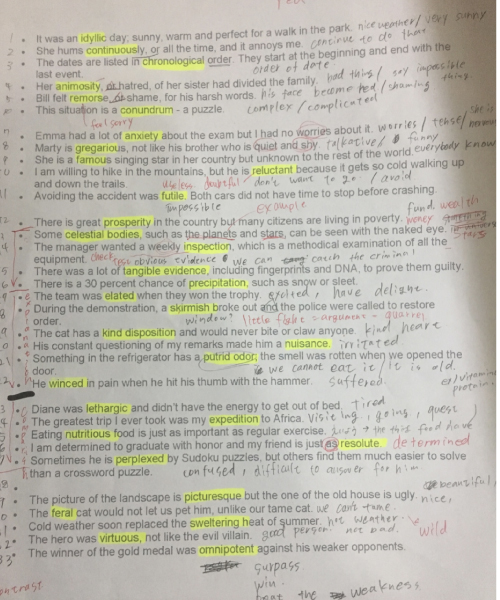 1 • It was an idyllic day; sunny, warm and perfect for a walk in the park. nice weather / very sunny
2 • She hums continuously, or all the time, and it annoys me. continue to do that
3 • The dates are listed in chronological order. They start at the beginning and end with the
last event. order of date
• Her animosity, or hatred, of her sister had divided the family. had thing / say impossible thing.
• Bill felt remorse, or shame, for his harsh words. his face become red / shaming
• This situation is a conundrum - a puzzle. complex / complicated
feel sorry
• Emma had a lot of anxiety about the exam but I had no worries about it. worries / tense /
8 • Marty is gregarious, not like his brother who is quiet and shy talkative / funny
9 • She is a famous singing star in her country but unknown to the rest of the world. everybody know
• I am willing to hike in the mountains, but he is reluctant because it gets so cold walking up
and down the trails useless doubtful don't want to go / avoid
• Avoiding the accident was futile. Both cars did not have time to stop before crashing.
impossible example
• There is great prosperity in the country but many citizens are living in poverty. fund wealth money
3 • Some celestial bodies, such as the planets and stars, can be seen with the naked eye.
4 • The manager wanted a weekly inspection, which is a methodical examination of all the
equipment. check obvious evidence we can catch the criminal
5 • There was a lot of tangible evidence, including fingerprints and DNA, to prove them guilty.
• There is a 30 percent chance of precipitation, such as snow or sleet.
• The team was elated when they won the trophy. excited, have delight.
8 • During the demonstration, a skirmish broke out and the police were called to restore
order. window? little fight - argument - quarrel
• The cat has a kind disposition and would never bite or claw anyone. kind heart
• His constant questioning of my remarks made him a nuisance. irritated
• Something in the refrigerator has a putrid odor; the smell was rotten when we opened the
door. we cannot eat it / it is old.
• He winced in pain when he hit his thumb with the hammer. suffered.
3 • Diane was lethargic and didn't have the energy to get out of bed. tired
4 • The greatest trip I ever took was my expedition to Africa. visiting, going, quest
5 • Eating nutritious food is just as important as regular exercise. the food have
• I am determined to graduate with honor and my friend is just as resolute. determined
• Sometimes he is perplexed by Sudoku puzzles, but others find them much easier to solve
than a crossword puzzle. confused, difficult to answer for him
• The picture of the landscape is picturesque but the one of the old house is ugly. nice, beautiful,
• The feral cat would not let us pet him, unlike our tame cat. we can't tame.
• Cold weather soon replaced the sweltering heat of summer. hot weather. wild
• The hero was virtuous, not like the evil villain. good person not bad.
33 • The winner of the gold medal was omnipotent against his weaker opponents.
surpass
win.
beat the weakness